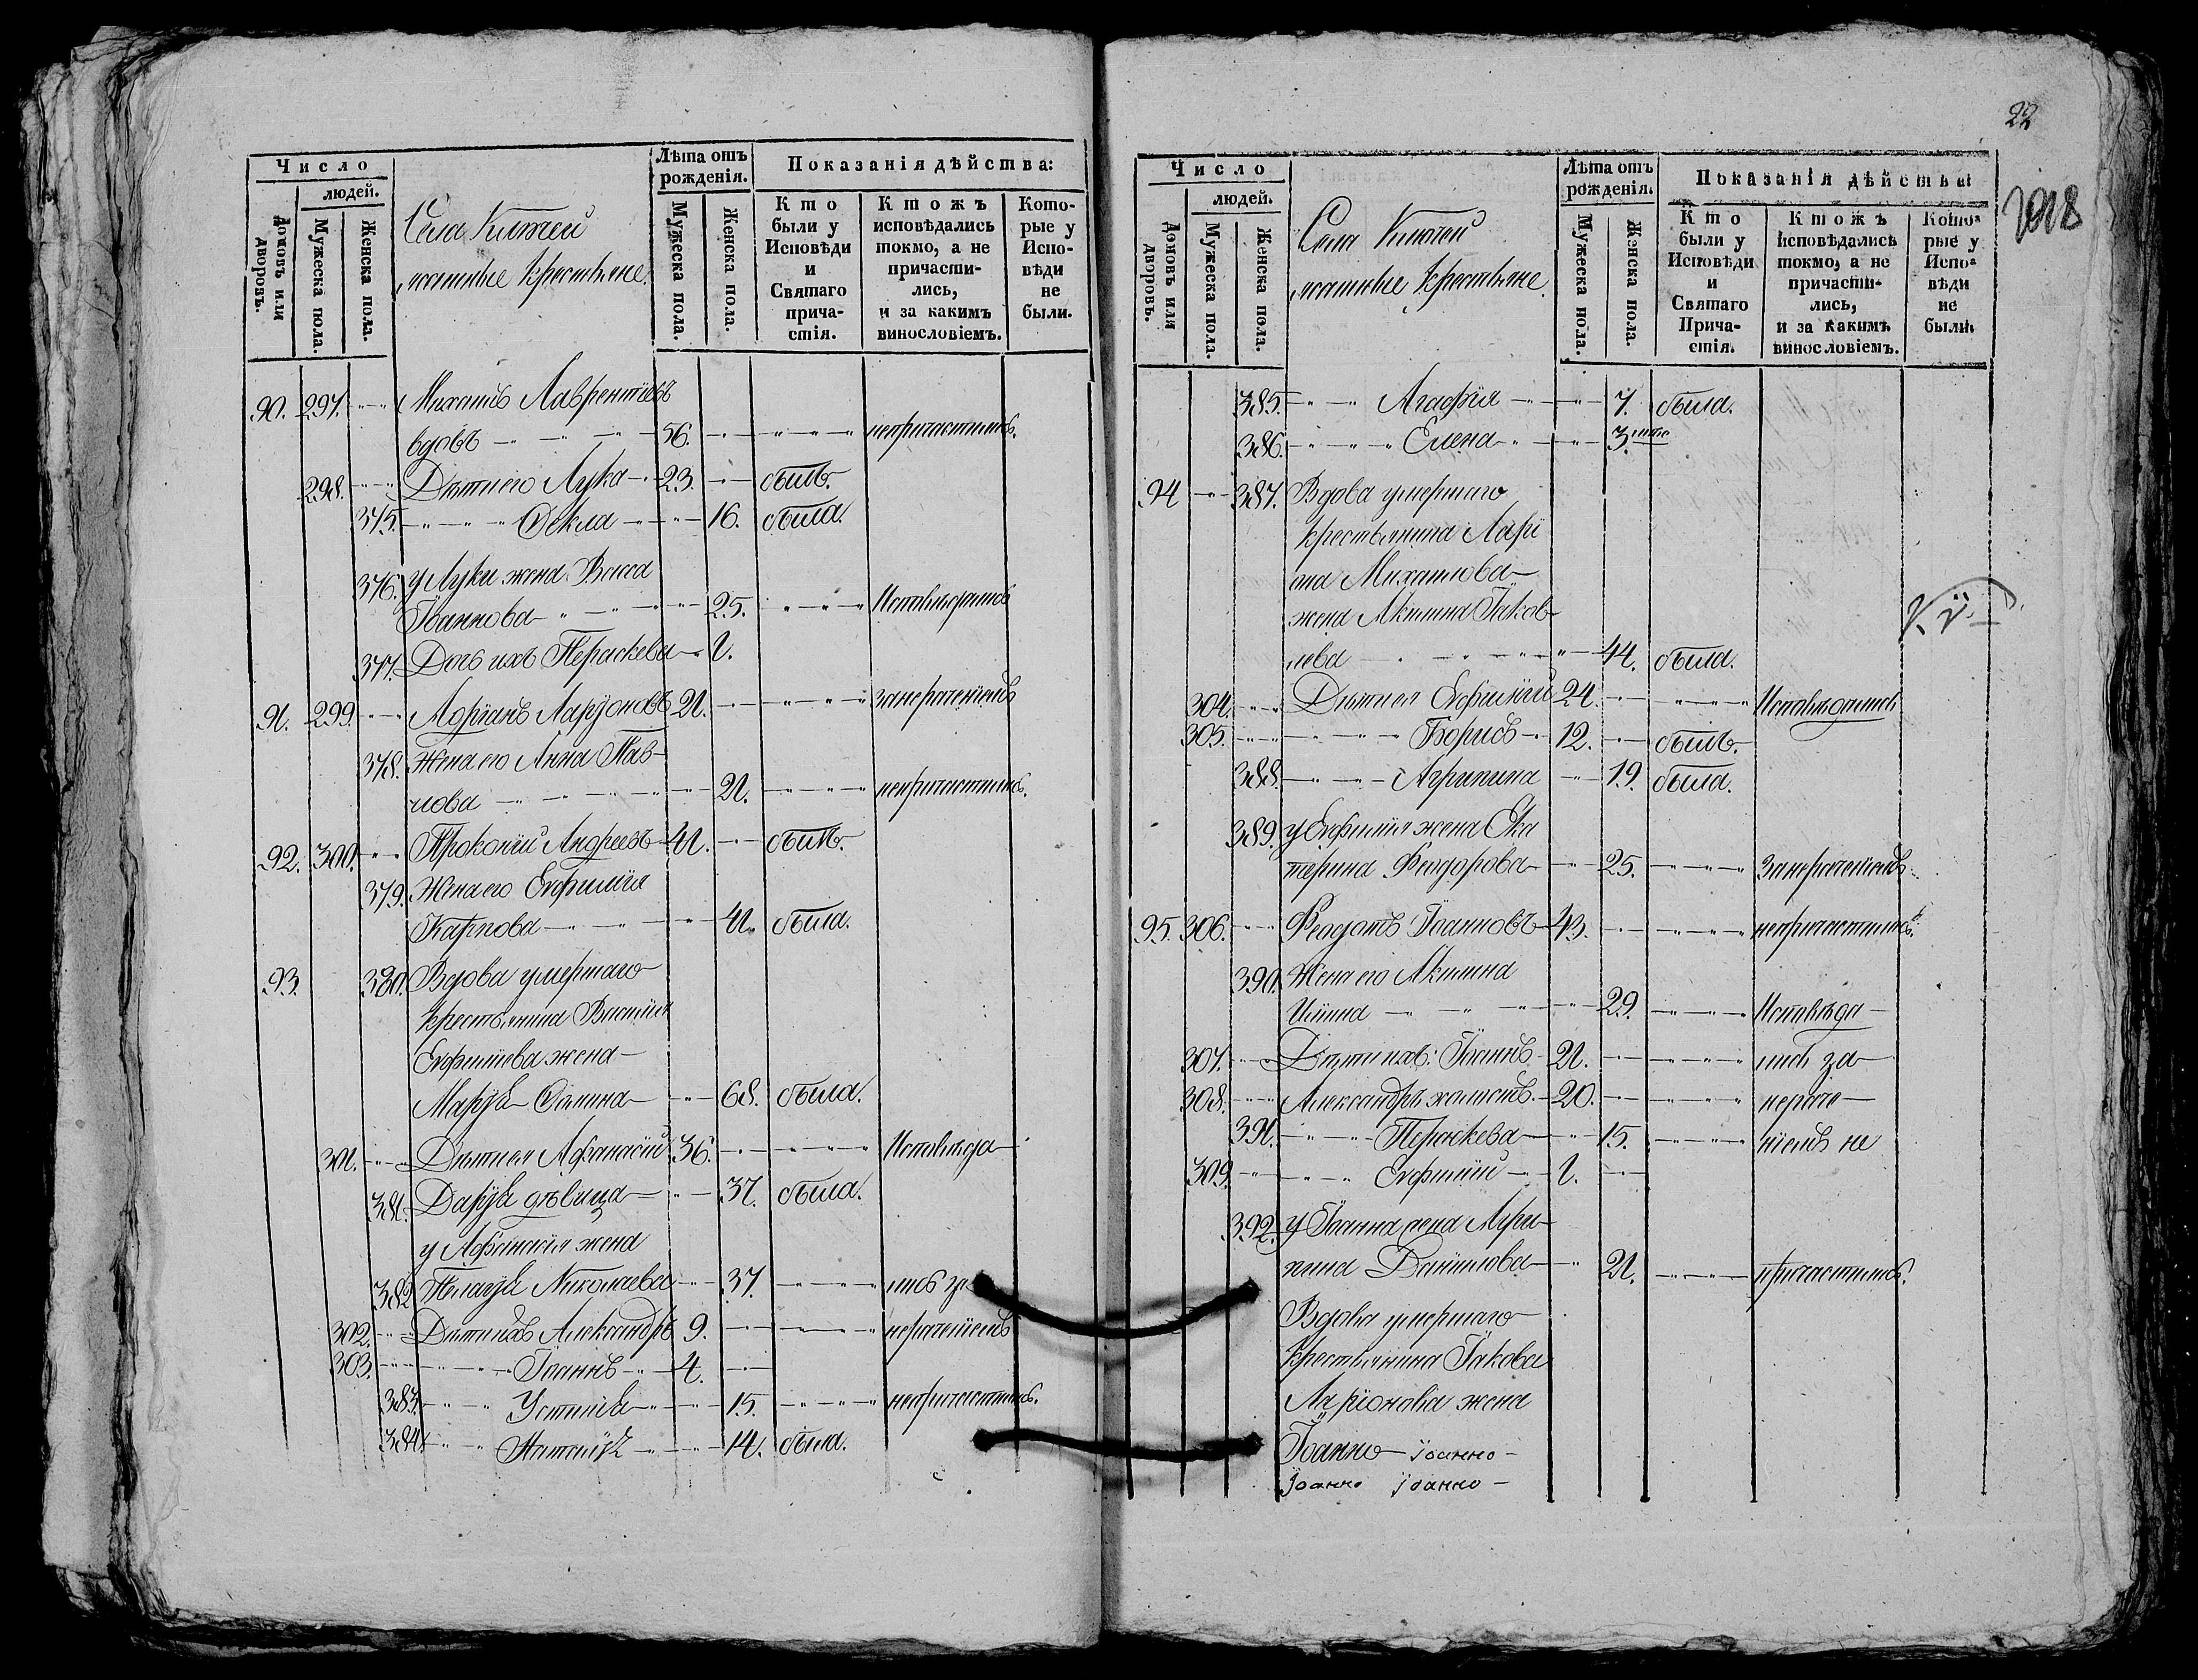 Число
людей.
Домовъ или дворовъ.
Мужеска пола.
Женска пола.
Села
крестьяне.
Лѣта отъ рожденія.
Мужеска пола.
Женска пола.
Показанія дѣйства:
Кто были у Исповѣди и Святаго прича-стія.
Ктожъ исповѣдались токмо, а не причасти-лись, и за какимъ винословіемъ.
Кото-рые у Испо-вѣди не были.
90. 297. Михаилъ Лаврентіевъ
вдовъ 56. непричастились.
298. Дѣти его Лука 23. былъ.
375. Ѳекла 16. была.
376. у Луки жена Васса
Іоаннова 25. Исповѣдались
377. Дочь ихъ Параскева 1.
91. 299. Адріанъ Ларіоновъ 21. занераченіемъ
378. Жена его Анна Пав-
лова 21. непричастились.
92. 300. Прокопій Андреевъ 41. былъ.
379. Жена его Евфимія
Карпова 41. была.
93. 380. Вдова умершаго
крестьянина Василія
Евфиміева жена
Марѳа Ѳомина 68. была.
301. Дѣти ея Аѳанасій 36. Исповѣда-
381. Дарья дѣвица 37. была.
у Аѳанасія жена
382. Пелагія Николаева 37. лись за
302. Дѣти ихъ Александръ 9. нераченіемъ
303. Іоаннъ 4.
383. Устинія 15. непричастились.
384. Наталія 14. была.
22
2018
Число
людей.
Домовъ или дворовъ.
Мужеска пола.
Женска пола.
Села
крестьяне.
Лѣта отъ рожденія.
Мужеска пола.
Женска пола.
Показанія дѣйства
Кто были у Исповѣди и Святаго Прича-стія.
Ктожъ исповѣдались токмо, а не причасти-лись, и за какимъ винословіемъ.
Кото-рые у Испо-вѣди не были.
385. Агафія 7. была.
386. Елена 3.
94 387. Вдова умершаго
крестьянина Ларі
она Михаилова
жена Акилина Іаков-
лева 44. была.
304. Дѣти ея Евфимій 24. Исповѣдались
305. Борисъ 12. былъ.
388. Агрипина 19. была.
389. у Евфимія жена Ека
терина Феодорова 25. Занераченіемъ
95. 306. Феодотъ Іоанновъ 43. непричастились.
390. Жена его Акилина
Ильина 29. Исповѣда-
307. Дѣти ихъ: Іоаннъ 21. лись за
308. Александръ холостъ. 20. нераче-
391. Параскева 15. ніемъ не
309. Евфимій 1.
392. у Іоанна жена Агри-
пина Данилова 21. причастились.
Вдова умершаго
крестьянина Іакова
Ларіонова жена
Іоанно- Іоанно-
Іоанно Іоанно-